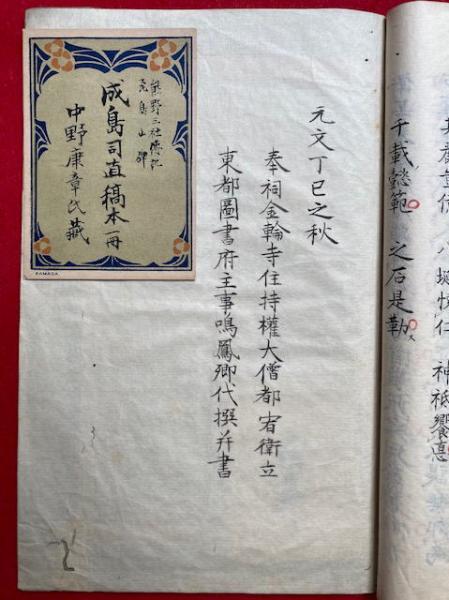 八埏悦仁 神祇饗悳
千載懿範 之石是勒
元文丁巳之秋
奉祠金輪寺住持權大僧都宥衛立
東都圖書府主事鳴鳳卿代撰并書
熊野三社傳記
飛鳥山碑
成島司直稿本一冊
中野康章氏藏